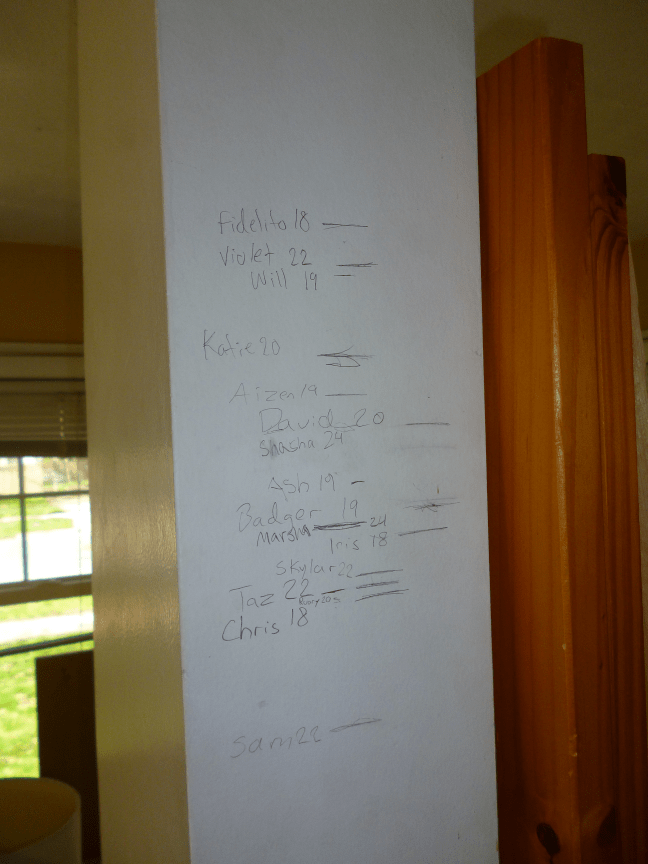 Fidelito 18
Violet 22
Will 19
Katie 20
Aizen 19
David 20
Shasha 24
Ash 19
Badger 19
Marsha 24
Iris 18
Skylar 22
Taz 22
Chris 18
Sam 22